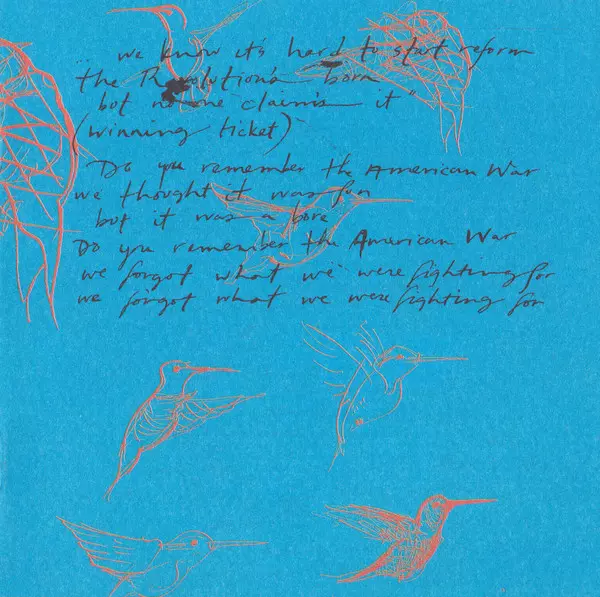 ... we know it's hard to start reform
the Revolution's born
but no one claim's it"
(winning ticket)
"Do you remember the American War
we thought it was fun
but it was a bore
Do you remember the American War
we forgot what we were fighting for
we forgot what we were fighting for